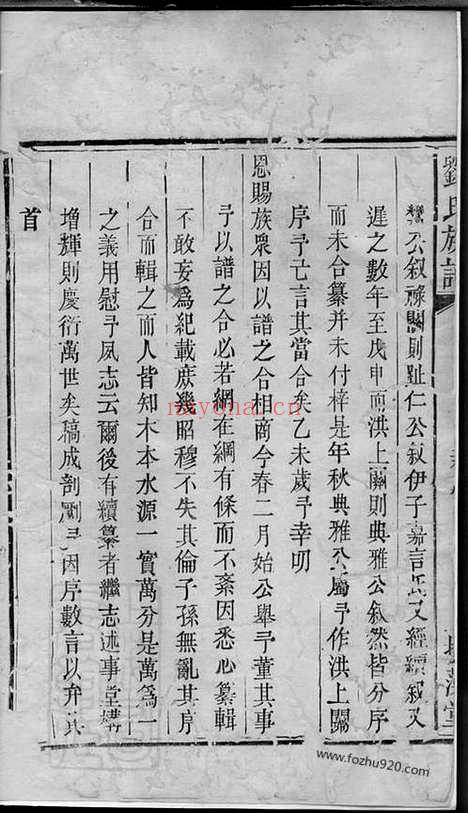 劉氏族譜
公叙祿關則趾仁公叙伊子嘉言氏又經續叙又
遲之數年至戊申而洪上關則典雅公叙然皆分序
而未合纂并未付梓是年秋典雅公屬予作洪上關
序予亡言其當合矣乙未歲予幸叨
恩賜族衆因以譜之合相商今春二月始公舉予董其事
予以譜之合必若網在綱有條而不紊因悉心纂輯
不敢妄爲紀載庶幾昭穆不失其倫子孫無亂其序
合而輯之而人皆知木本水源一實萬分是萬爲一
之義用慰予夙志云爾後有續纂者繼志述事堂構
增輝則慶衍萬世矣稿成剖劂予因序數言以弁其
首
nayona.cn
www.fozhu920.com